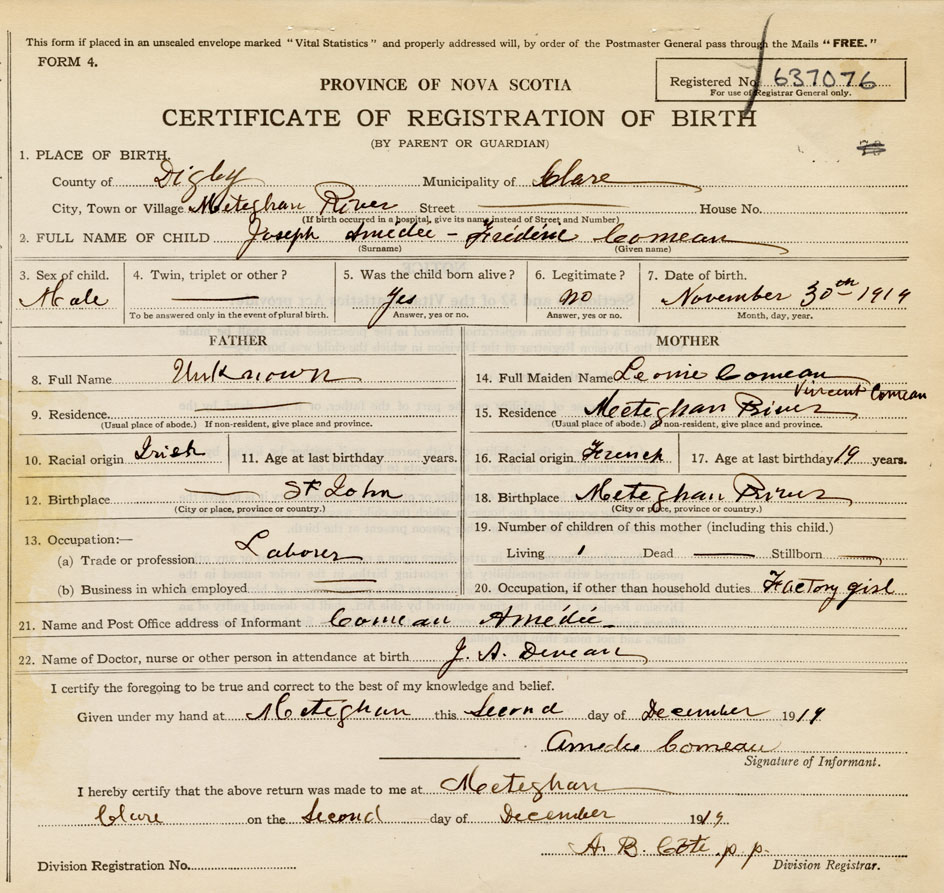 This form if placed in an unsealed envelope marked "Vital Statistics" and properly addressed will, by order of the Postmaster General pass through the Mails "FREE."
FORM 4.
Registered No. 637076
For use of Registrar General only.
PROVINCE OF NOVA SCOTIA
CERTIFICATE OF REGISTRATION OF BIRTH
(BY PARENT OR GUARDIAN)
1. PLACE OF BIRTH.
County of Digby Municipality of Clare
City, Town or Village Meteghan River Street House No.
(If birth occurred in a hospital, give its name instead of Street and Number)
2. FULL NAME OF CHILD Joseph Amédée - Comeau
(Surname) (Given name)
3. Sex of child. 4. Twin, triplet or other? 5. Was the child born alive? 6. Legitimate? 7. Date of birth.
Male Yes no November 30th 1919
To be answered only in the event of plural birth. Answer, yes or no. Answer, yes or no. Month, day, year.
FATHER MOTHER
8. Full Name Unknown 14. Full Maiden Name Leonie Comeau
Vincent Comeau
9. Residence 15. Residence Meteghan River
(Usual place of abode.) If non-resident, give place and province. (Usual place of abode.) If non-resident, give place and province.
10. Racial origin Irish 11. Age at last birthday years. 16. Racial origin French 17. Age at last birthday 19 years.
12. Birthplace St John 18. Birthplace Meteghan River
(City or place, province or country.) (City or place, province or country.)
13. Occupation:— 19. Number of children of this mother (including this child.)
(a) Trade or profession Laborer Living 1 Dead Stillborn
(b) Business in which employed 20. Occupation, if other than household duties Factory girl
21. Name and Post Office address of Informant Comeau Amédée
22. Name of Doctor, nurse or other person in attendance at birth J. A. Deveau
I certify the foregoing to be true and correct to the best of my knowledge and belief.
Given under my hand at Meteghan this Second day of December 1919
Amedee Comeau
Signature of Informant.
I hereby certify that the above return was made to me at Meteghan
Clare on the Second day of December 1919
A. B. Côte p.p.
Division Registration No. Division Registrar.